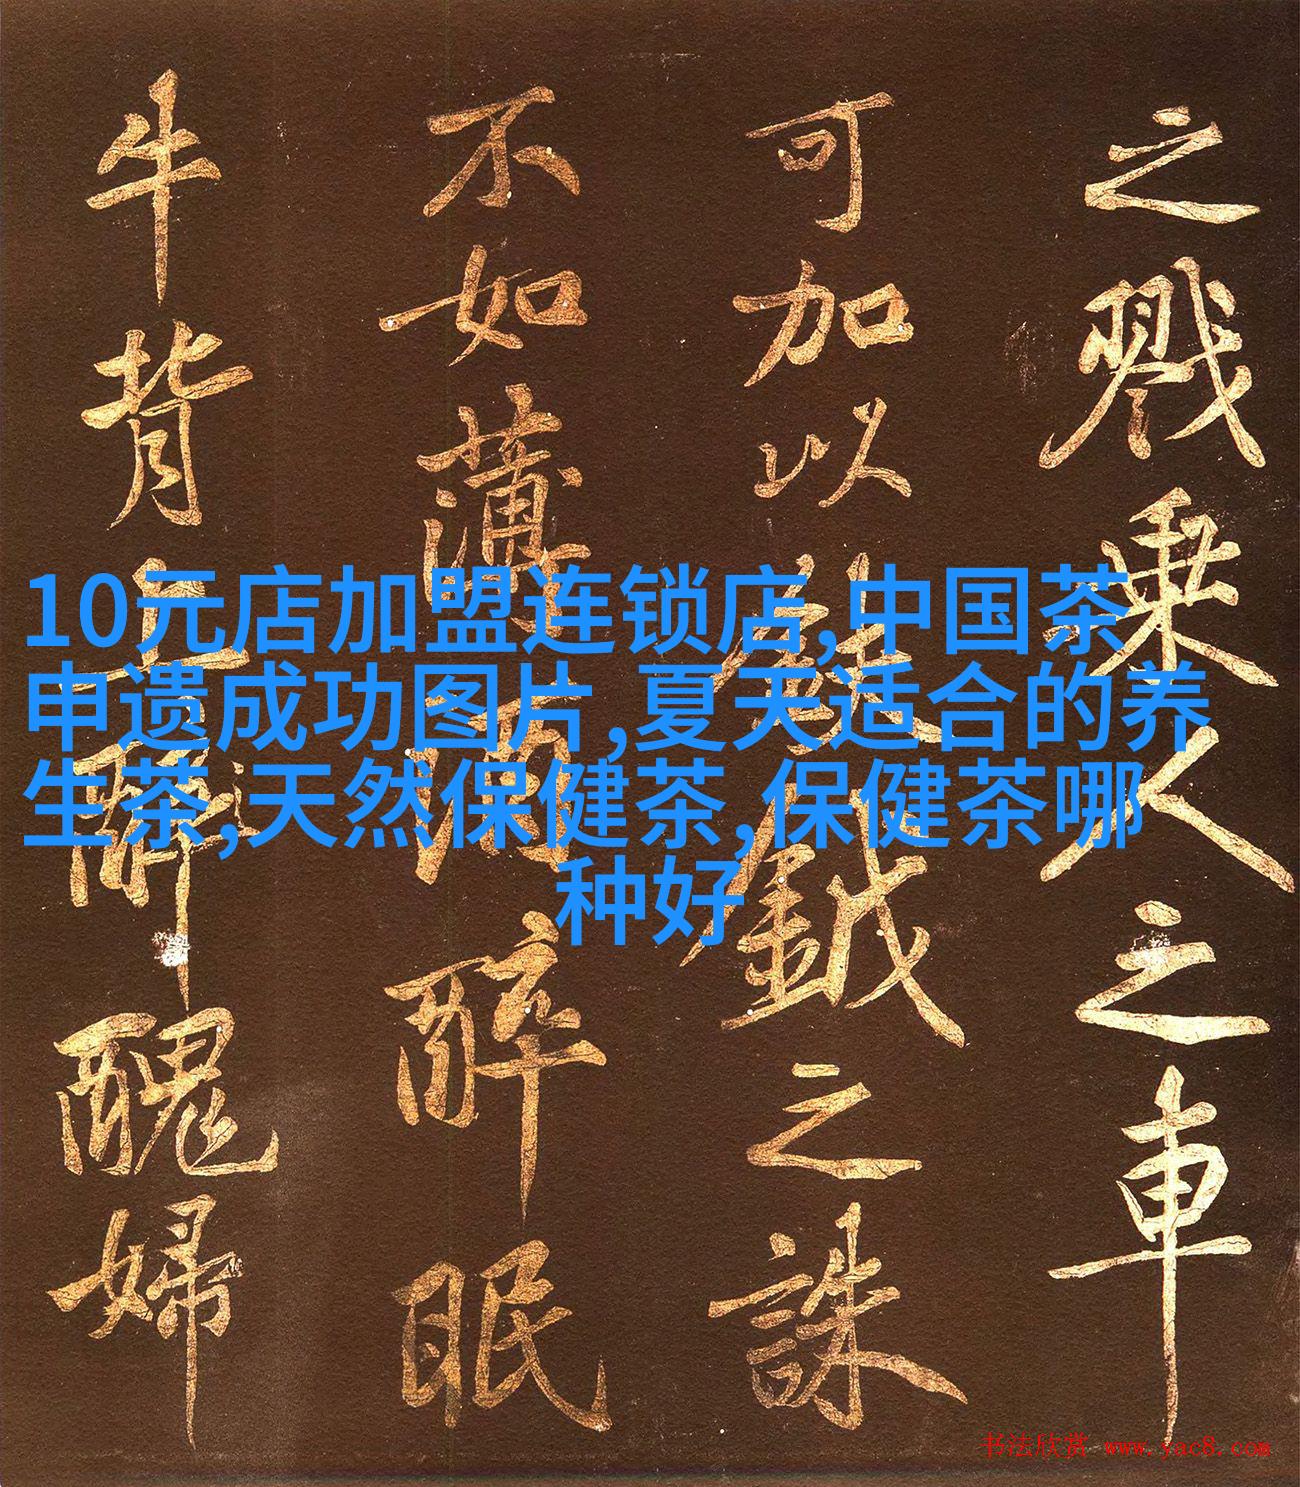 之戮乘人之車
可加以鈇鉞之誅
不如薄酒醉眠
牛背上醉醜婦
10元店加盟连锁店,中国茶
申遗成功图片,夏天适合的养
生茶,天然保健茶,保健茶哪
种好
书法欣赏 www.yac8.com